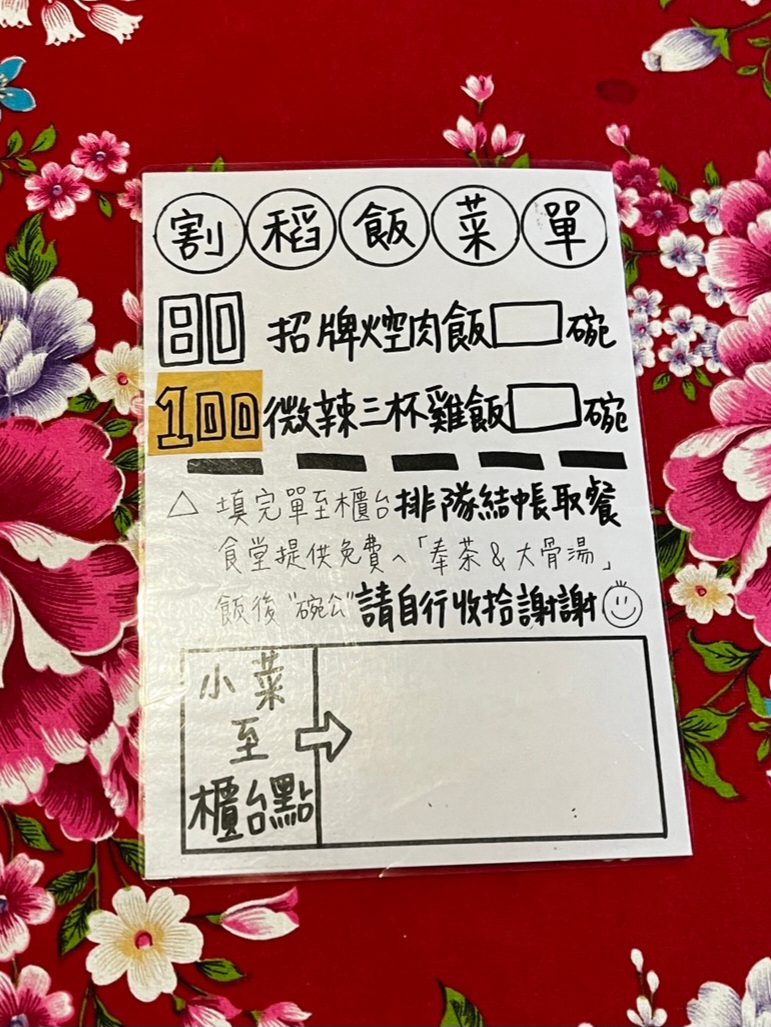 割稻飯菜單
80 招牌焢肉飯 碗
100 微辣三杯雞飯 碗
△ 填完單至櫃台排隊結帳取餐
食堂提供免費へ「奉茶&大骨湯」
飯後"碗公"請自行收拾謝謝
小菜
至
櫃台點